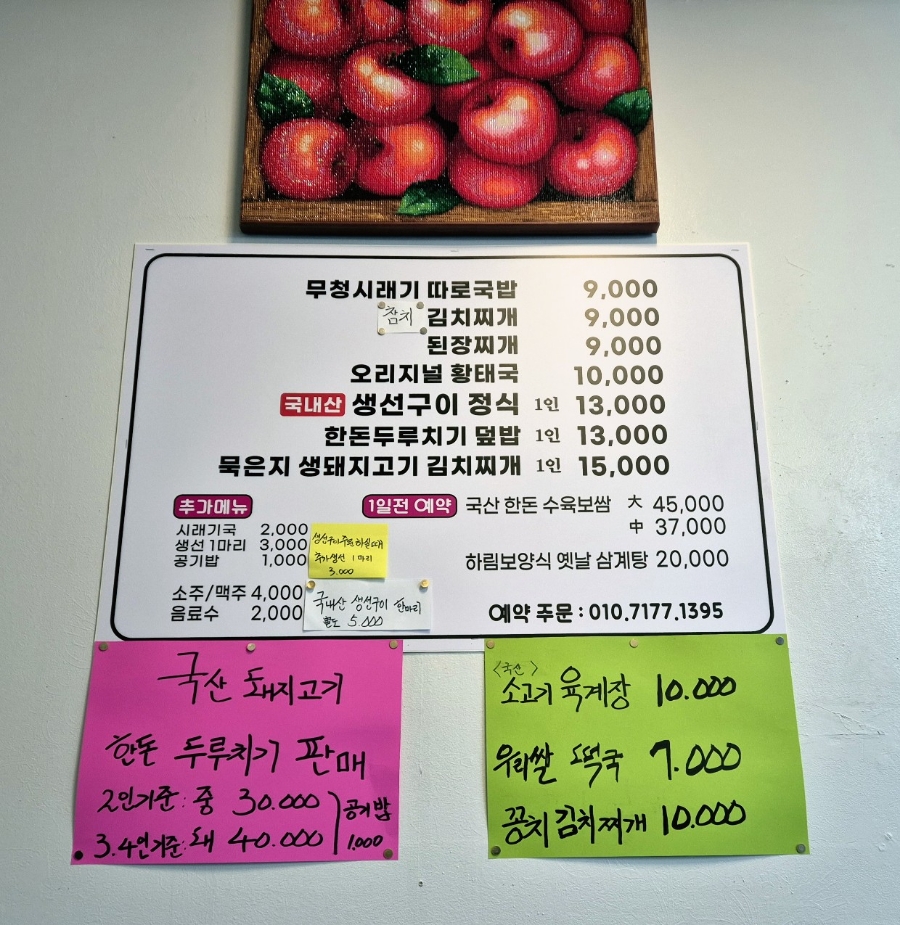 무청시래기 따로국밥 9,000
참치 김치찌개 9,000
된장찌개 9,000
오리지널 황태국 10,000
국내산 생선구이 정식 1인 13,000
한돈두루치기 덮밥 1인 13,000
묵은지 생돼지고기 김치찌개 1인 15,000
추가메뉴
시래기국 2,000
생선 1마리 3,000
공기밥 1,000
소주/맥주 4,000
음료수 2,000
생선구이 주문하실때
추가생선 1마리
3.000
국내산 생선구이 한마리
별도 5.000
1일전 예약 국산 한돈 수육보쌈 大 45,000
中 37,000
하림보양식 옛날 삼계탕 20,000
예약 주문 : 010.7177.1395
국산 돼지고기
한돈 두루치기 판매
2인기준: 중 30.000
3.4인기준: 대 40.000
공기밥
1.000
<국산>
소고기 육계장 10.000
우리쌀 떡국 7.000
꽁치 김치찌개 10.000